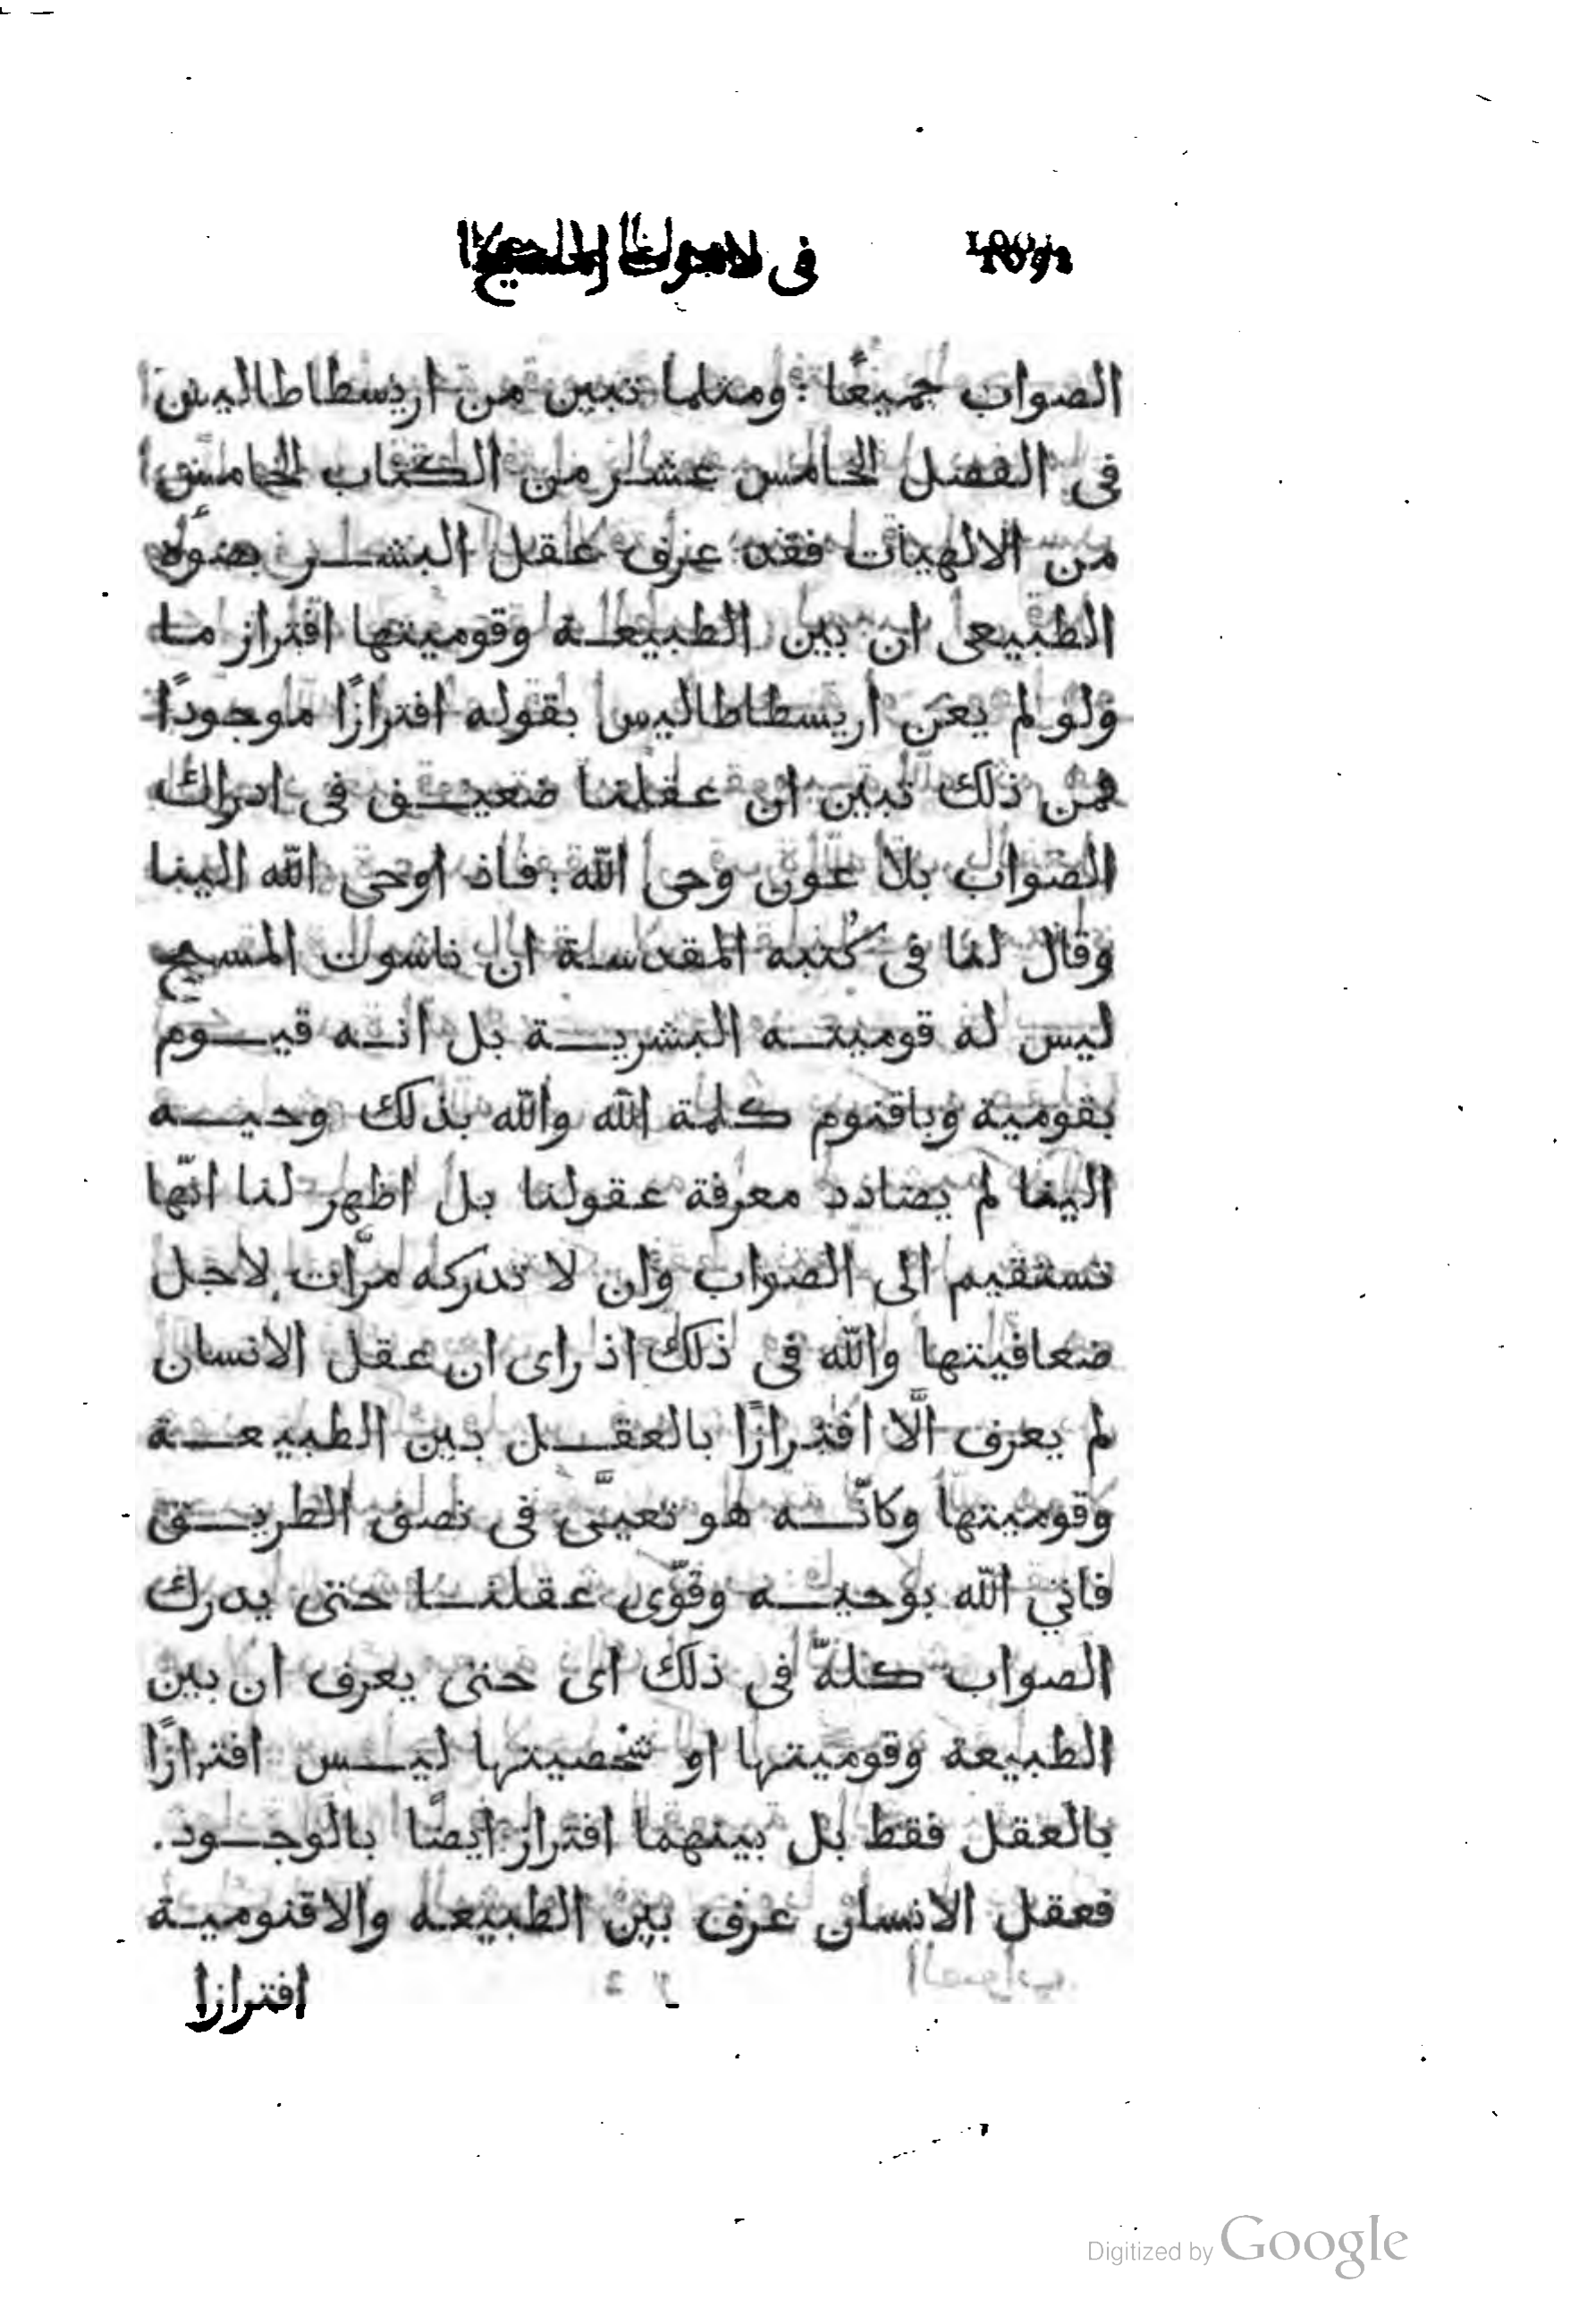 فى
الصواب جميعًا: ومثلما تبين من اريسطاطاليس
فى الفصل الخامس عشر من الكتاب الخامس
من الالهيات فقد عرف عقل البشر بضوٴه
الطبيعى ان بين الطبيعة وقوميتها افتراز ما
ولو لم يعن اريسطاطاليس بقوله افترازًا موجودًا
فمن ذلك تبين ان عقلنا ضعيف فى ادراك
الصواب بلا عون وحى اللّه: فاذ اوحى اللّه الينا
وقال لنا فى كُتبه المقدسة ان ناسوت المسيح
ليس له قوميته البشرية بل انه قيوم
بقومية وباقنوم كلمة اللّه واللّه بذلك وحيه
الينا لم يضادد معرفة عقولنا بل اظهر لنا انّها
تستقيم الى الصواب وان لا تدركه مرَّات لاجل
ضعافيتها واللّه فى ذلك اذ راى ان عقل الانسان
لم يعرف الَّا افترازًا بالعقل بين الطبيعة
وقوميتها وكانّه هو تعيَّى فى نصف الطريق
فاتي اللّه بوحيه وقوّى عقلنا حتى يدرك
الصواب كلهّ فى ذلك اى حتى يعرف ان بين
الطبيعة وقوميتها او شخصيتها ليس افترازًا
بالعقل فقط بل بينهما افتراز ايضًا بالوجود.
فعقل الانسان عرف بين الطبيعه والاقنومية
افترازا
Digitized by Google